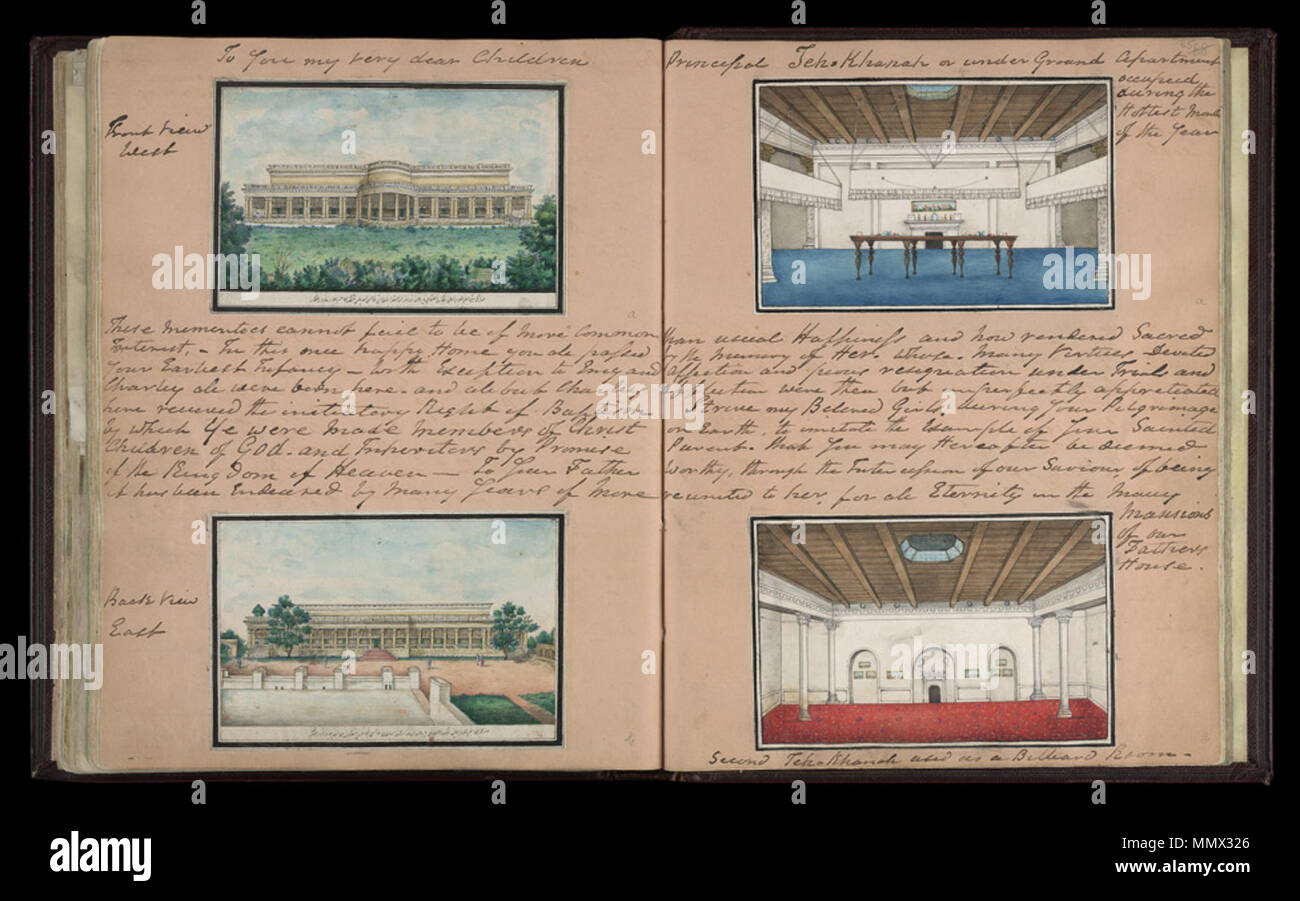 To You my very dear Children
Front View
West
These Mementoes cannot fail to be of more common
Interest, - In this once happy Home you all passed
Your Earliest Infancy - with Exception to Emy and
Charley all were born here - and all but Charley
have received the initiatory Right of Baptism
by which Ye were made Members of Christ
Children of God - and Inheritors by Promise
of the King Dom of Heaven - To Your Father
it has been Endeared by Many Years of More
Back View
East
Principal TehKhanah or under Ground Apartment
occupied
during the
Hottest Months
of the Year
than usual Happiness and now rendered Sacred
by the Memory of Her whose Many Virtues - Devoted
Affection and pious resignation under Trials and
Affliction were then but imperfectly appreciated
Strive my Beloved Girls during Your Pilgrimage
on Earth, to imitate the Example of Your Sainted
Parent - that You may Hereafter be deemed
worthy, through the Intercession of our Saviour, of being
reunited to her, for all Eternity in the Many
Mansions
of our
Fathers
House.
Second TehKhanah used as a Billiard Room -
alamy
alamy
Image ID: MMX326
www.alamy.com